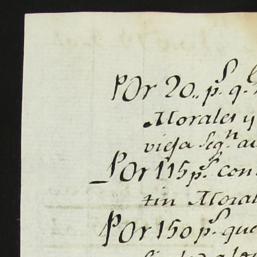 POr 20„ p.s q.e
Morales y
vieja seg.n au
POr 115 p.s con
tin Moral
POr 150 p.s que